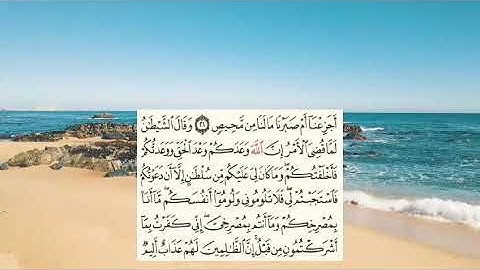 أَجَزِعْنَا أَمْ صَبَرْنَا مَا لَنَا مِن مَّحِيصٍ ٢١ وَقَالَ الشَّيْطَٰنُ
لَمَّا قُضِيَ الْأَمْرُ إِنَّ اللَّهَ وَعَدَكُمْ وَعْدَ الْحَقِّ وَوَعَدتُّكُمْ
فَأَخْلَفْتُكُمْ ۖ وَمَا كَانَ لِيَ عَلَيْكُم مِّن سُلْطَٰنٍ إِلَّا أَن دَعَوْتُكُمْ
فَاسْتَجَبْتُمْ لِي ۖ فَلَا تَلُومُونِي وَلُومُوا أَنفُسَكُم ۖ مَّا أَنَا
بِمُصْرِخِكُمْ وَمَا أَنتُم بِمُصْرِخِيَّ ۖ إِنِّي كَفَرْتُ بِمَا
أَشْرَكْتُمُونِ مِن قَبْلُ ۗ إِنَّ الظَّٰلِمِينَ لَهُمْ عَذَابٌ أَلِيمٌ